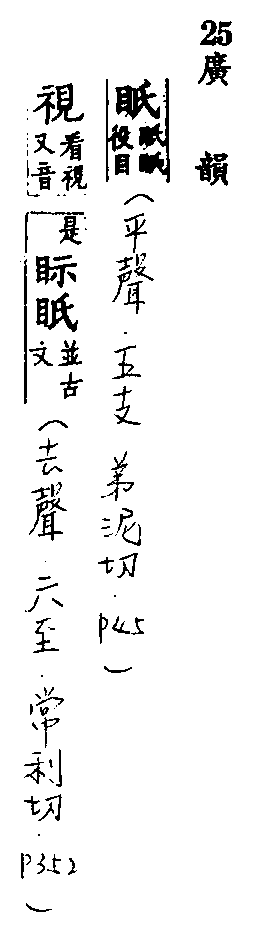 25廣韻
眂眂眂役目（平聲．五支　弟泥切．P45）
視看視又音是眎眡並古文（去聲．六至．常利切．P352）